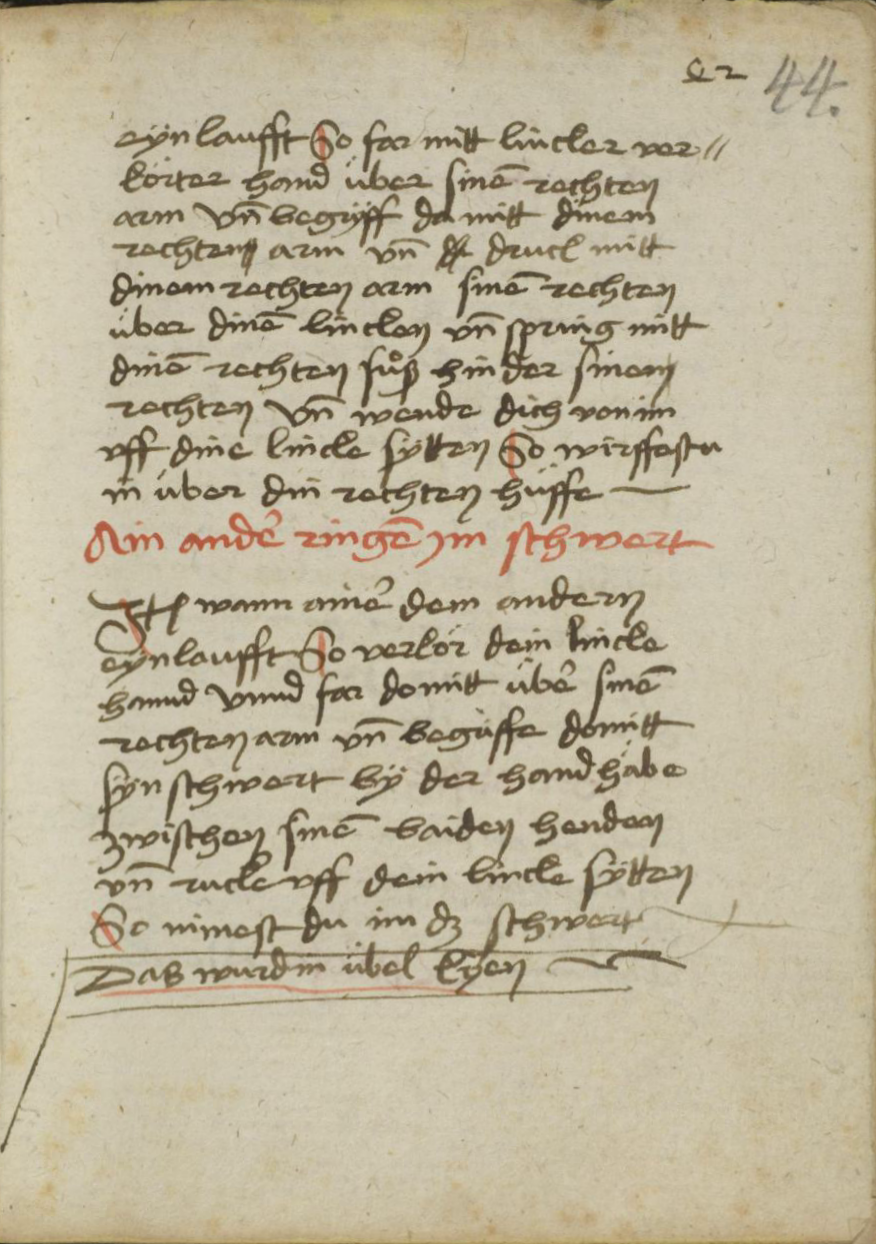 42 44.
eÿnlaufft So far mitt lincler ver//
körter hand über sinē rechten
arm vn̄ begrÿff da mitt dinem
rechten arm vn̄ druck mitt
dinem rechten arm sinē rechten
über dinē lincken vn̄ spring mitt
dinē rechten fůß hinder sinem
rechten vn̄ wende dich von im
vff dine lincke sÿtten So wirffestu
in über din rechten hüffe
Ain ander ringē jm schwert
Itē wann ainer dem andern
eÿnlaufft So verkör dein lincke
hannd vnnd far domitt über sinē
rechten arm vn̄ begriffe domitt
sÿn schwert bÿ der handhäbe
zwischen sinē baiden henden
vn̄ rucke vff dein lincke sÿtten
So nimest du im dz schwert
Das wurd im übel kÿen